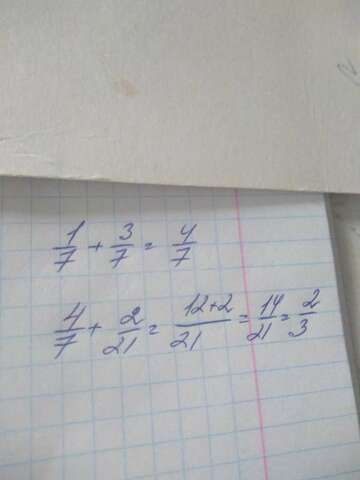 1/7 + 3/7 = 4/7
4/7 + 2/21 = 12+2/21 = 14/21 = 2/3